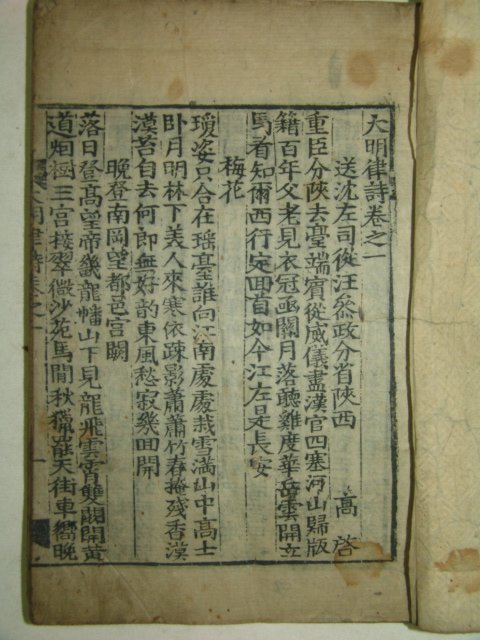 大明律詩卷之一
送沈左司從汪叅政分省陝西 高啓
重臣分陝去臺端賓從威儀盡漢官四塞河山歸版
籍百年父老見衣冠凾關月落聽雞度華岳雲開立
馬看知爾西行定回首如今江左是長安
梅花
瓊姿只合在瑶臺誰向江南處處栽雪滿山中高士
卧月明林下美人來寒依疎影蕭蕭竹春掩殘香漠
漠苔自去何郎無好韵東風愁寂幾回開
晚登南岡望都邑宮闕
落日登高望帝畿龍幡山下見龍飛雲霄雙闕開黃
道烟樹三宮接翠微沙苑馬閒秋獵罷天街車響晚
大明律詩卷之一